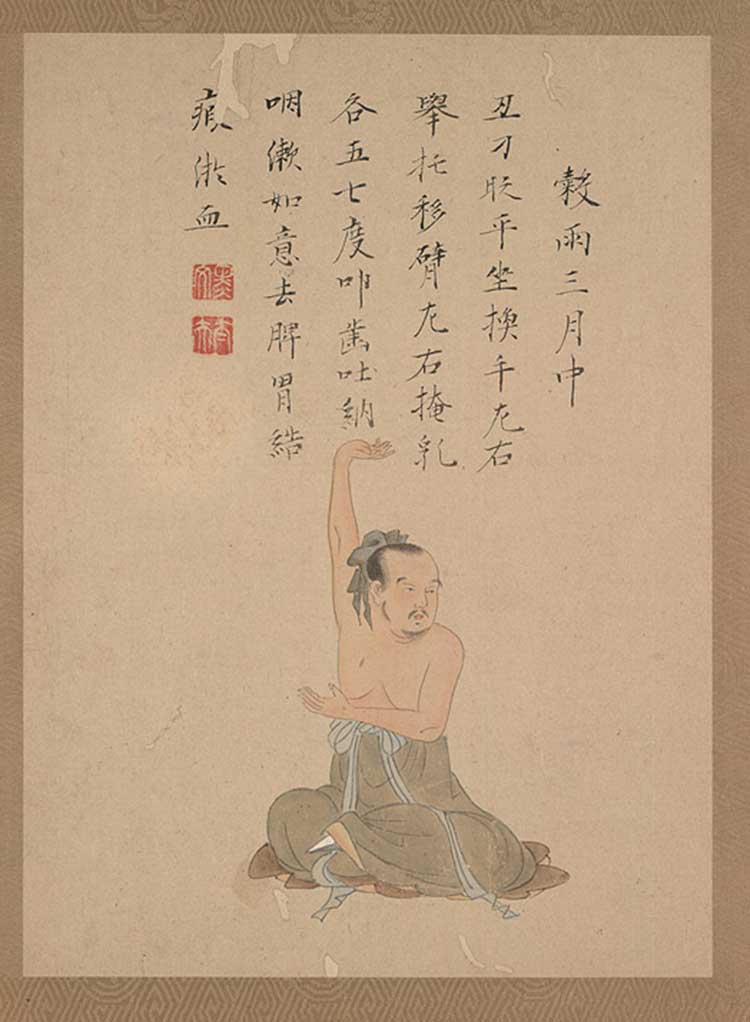 穀雨三月中
丑刁时平坐換手左右
舉托移臂左右掩乳
各五七度叩齒吐納
咽漱如意去脾胃結
瘕淤血